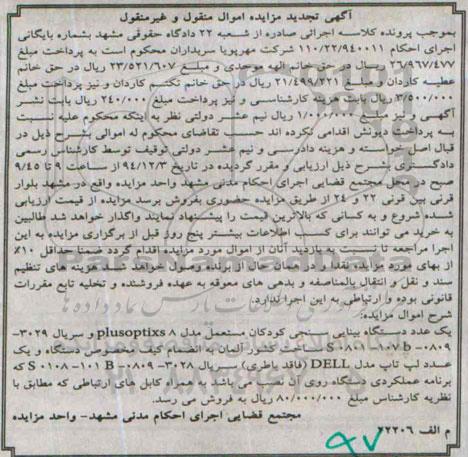 آگهی تجدید مزایده اموال منقول و غیرمنقول
بموجب پرونده کلاسه اجرائی صادره از شعبه ۲۲ دادگاه حقوقی مشهد بشماره بایگانی
اجرای احکام ۱۱۰/۲۲/۹۴۰۰۱۱ شرکت مهرپویا سربداران محکوم است به پرداخت مبلغ
۲۶/۹۶۷/۴۷۷ ریال در حق خانم الهه موحدی و مبلغ ۲۳/۵۲۱/۶۰۷ ریال در حق خانم
عطیه کاردان و مبلغ ۲۱/۴۹۹/۲۲۱ ریال در حق خانم تکتم کاردان و نیز پرداخت مبلغ
۳/۵۰۰/۰۰۰ ریال بابت هزینه کارشناسی و نیز پرداخت مبلغ ۲۴۰/۰۰۰ ریال بابت نشر
آگهی و نیز مبلغ ۱/۰۰۰/۰۰۰ ریال نیم عشر دولتی نظر به اینکه محکوم علیه نسبت
به پرداخت دیونش اقدامی نکرده اند حسب تقاضای محکوم له اموالی بشرح ذیل در
قبال اصل خواسته و هزینه دادرسی و نیم عشر دولتی توقیف توسط کارشناس رسمی
دادگستری بشرح ذیل ارزیابی و مقرر گردیده در تاریخ ۹۴/۱۲/۳ از ساعت ۹ تا ۹/۴۵
صبح در محل مجتمع قضایی اجرای احکام مدنی مشهد واحد مزایده واقع در مشهد بلوار
قرنی بین قرنی ۲۲ و ۲۴ از طریق مزایده حضوری بفروش برسد مزایده از قیمت ارزیابی
شده شروع و به کسانی که بالاترین قیمت را پیشنهاد نمایند واگذار خواهد شد طالبین
به خرید می توانند برای کسب اطلاعات بیشتر پنج روز قبل از برگزاری مزایده به این
اجرا مراجعه تا نسبت به بازدید آنان از اموال مورد مزایده اقدام گردد ضمنا حداقل ۱۰٪
از بهای مورد مزایده نقدا و در همان حال از برنده وصول خواهد شد هزینه های تنظیم
سند و نقل و انتقال بالمناصفه و بدهی های معوقه به عهده فروشنده و تخلیه تابع مقررات
قانونی بوده و ارتباطی به این اجرا ندارد.
شرح اموال مزایده:
یک عدد دستگاه بینایی سنجی کودکان مستعمل مدل plusoptixs ۸ و سریال ۳۰۲۹-
۰۸۰۹-S ۰۱۰۸-۱۰۷ b ساخت کشور آلمان به انضمام کیف مخصوص دستگاه و یک
عدد لپ تاپ مدل DELL (فاقد باطری) سریال ۳۰۲۸-۰۸۰۹-S ۰۱۰۸-۱۰۱ B که
برنامه عملکردی دستگاه روی آن نصب می باشد به همراه کابل های ارتباطی که مطابق با
نظریه کارشناس مبلغ ۸۰/۰۰۰/۰۰۰ ریال به فروش می رسد.
مجتمع قضایی اجرای احکام مدنی مشهد- واحد مزایده
م الف ۴۲۲۰۶
۹۷
ParsNamadData